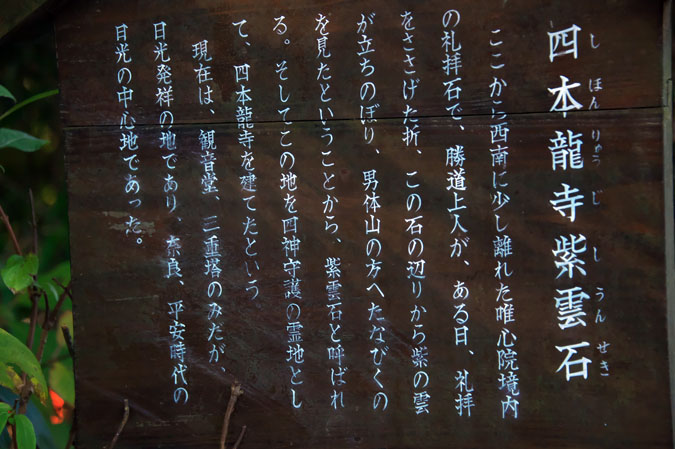 四本龍寺紫雲石
しほんりゅうじしうんせき
ここから西南に少し離れた唯心院境内
の礼拝石で、勝道上人が、ある日、礼拝
をささげた折、この石の辺りから紫の雲
が立ちのぼり、男体山の方へたなびくの
を見たということから、紫雲石と呼ばれ
る。そしてこの地を四神守護の霊地とし
て、四本龍寺を建てたという
現在は、観音堂、三重塔のみだが、
日光発祥の地であり、奈良、平安時代の
日光の中心地であった。